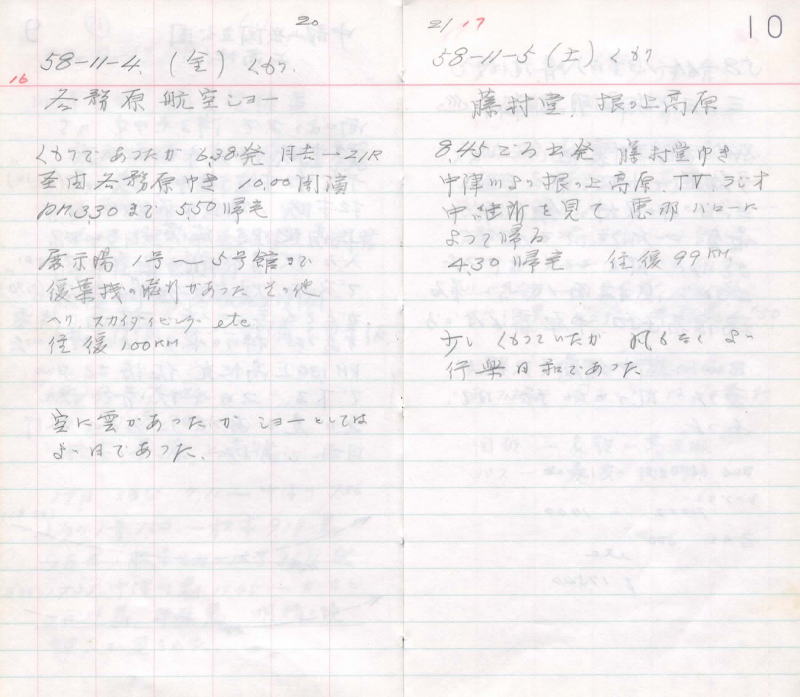 20
16
58-11-4. (金) くもり.
各務原航空ショー
くもりであったが 6,38発
至 各務原ゆき 10,00開演
PM.3,30まで 5,50帰宅
展示場 1号〜5号館まで
復葉機の があった その他
ヘリ スカイダイビング etc
往復 100KM
空に雲があったが ショーとしては
よい日であった.
21 17
10
58-11-5 (土) くもり
藤村堂, 根の上高原
8,45ごろ出発 藤村堂ゆき
中津川より根の上高原 TV ラジオ
中継所を見て 恵那 バローに
よって帰る
4,30 帰宅 往復 99KM,
少し くもっていたが 風もなく よい
行楽日和であった.